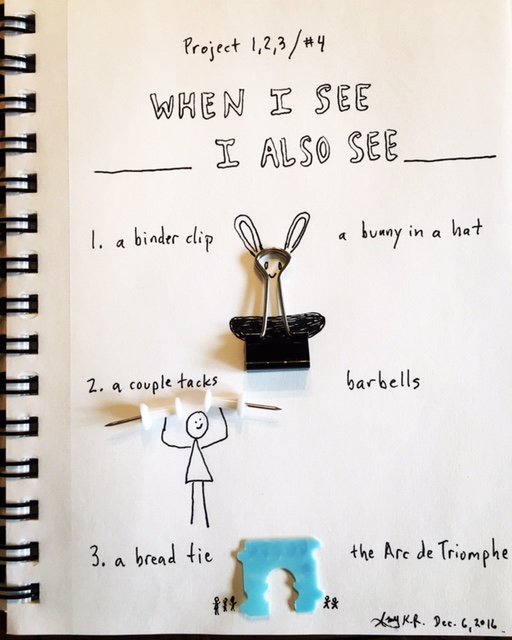 Project 1,2,3/#4
WHEN I SEE
______ I ALSO SEE ______
1. a binder clip a bunny in a hat
2. a couple tacks barbells
3. a bread tie the Arc de Triomphe
Amy K.R. Dec. 6, 2016